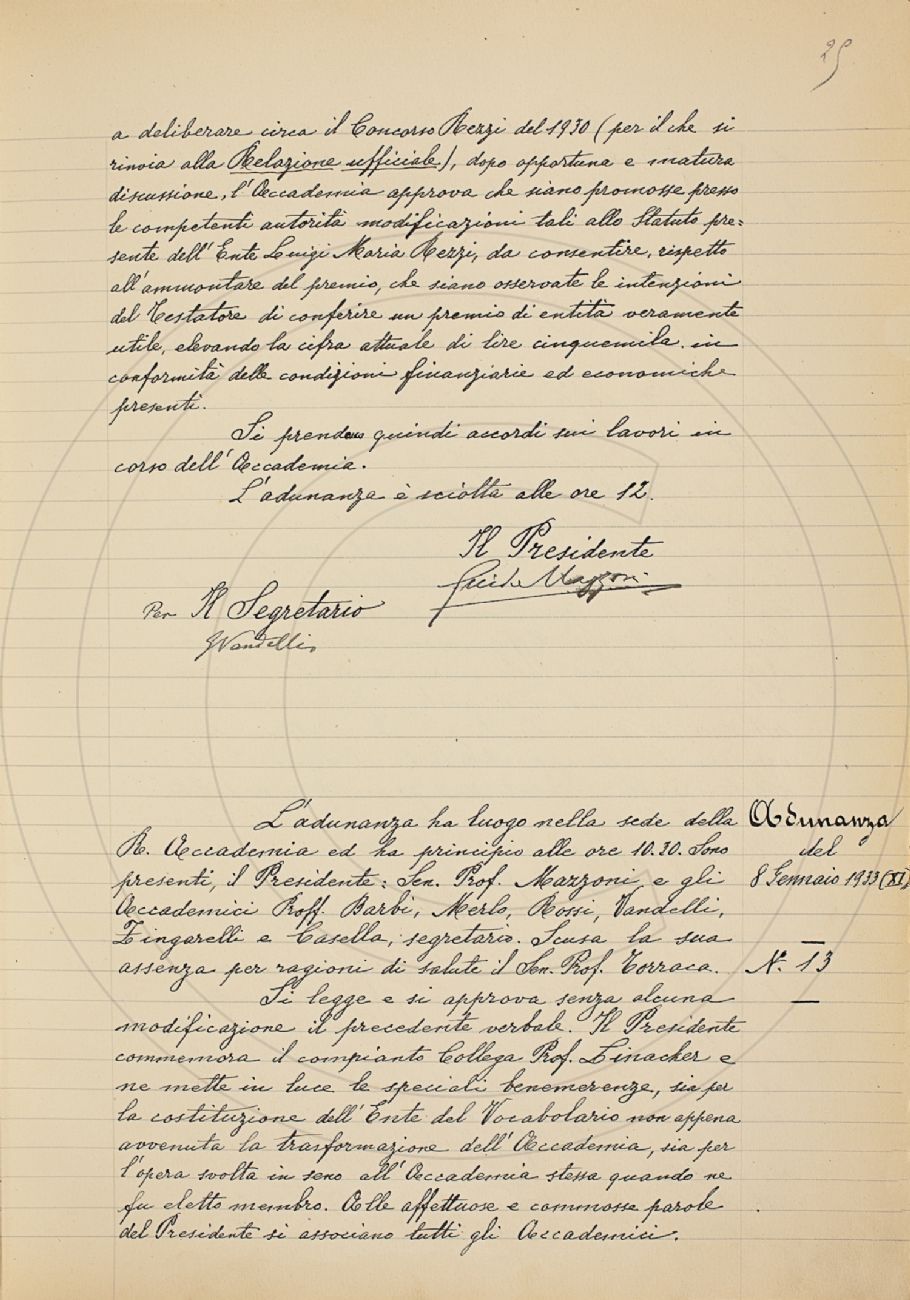 29
a deliberare circa il Concorso Rezzi del 1930 (per il che si
rinvia alla Relazione ufficiale), dopo opportuna e matura
discussione, l'Accademia approva che siano promosse presso
le competenti autorità modificazioni tali allo Statuto pre=
sente dell'Ente Luigi Maria Rezzi, da consentire, rispetto
all'ammontare del premio, che siano osservate le intenzioni
del Testatore di conferire un premio di entità veramente
utile, elevando la cifra attuale di lire cinquemila in
conformità delle condizioni finanziarie ed economiche
presenti.
Si prendono quindi accordi sui lavori in
corso dell'Accademia.
L'adunanza è sciolta alle ore 12.
Il Presidente
Guido Mazzoni
Per Il Segretario
GVandelli
L'adunanza ha luogo nella sede della
R. Accademia ed ha principio alle ore 10.30. Sono
presenti, il Presidente: Sen. Prof. Mazzoni, e gli
Accademici Proff. Barbi, Merlo, Rossi, Vandelli,
Zingarelli e Casella, segretario. Scusa la sua
assenza per ragioni di salute il Sen. Prof. Torraca.
Adunanza
del
8 Gennaio 1933 (XI)
N. 13
Si legge e si approva senza alcuna
modificazione il precedente verbale. Il Presidente
commemora il compianto Collega Prof. Linacher e
ne mette in luce le speciali benemerenze, sia per
la costituzione dell'Ente del Vocabolario non appena
avvenuta la trasformazione dell'Accademia, sia per
l'opera svolta in seno all'Accademia stessa quando ne
fu eletto membro. Alle affettuose e commosse parole
del Presidente si associano tutti gli Accademici.